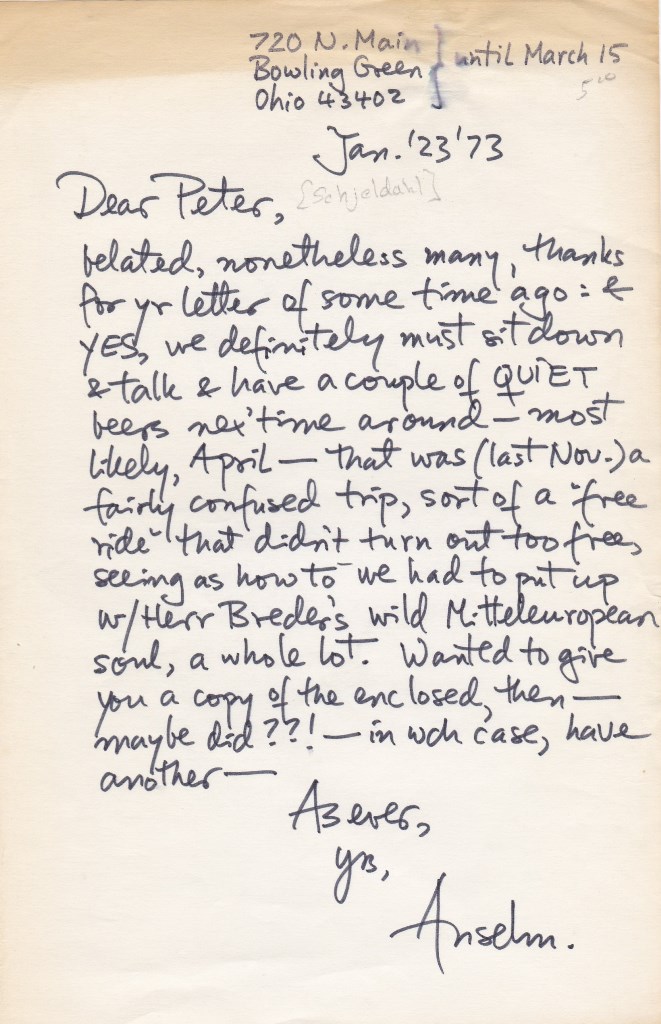 720 N. Main } until March 15
Bowling Green
Ohio 43402
5⁰⁰
Jan. '23 '73
Dear Peter, [Schjeldahl]
belated, nonetheless many, thanks
for yr letter of some time ago : &
YES, we definitely must sit down
& talk & have a couple of QUIET
beers nex' time around — most
likely, April — that was (last Nov.) a
fairly confused trip, sort of a "free
ride" that didn't turn out too free,
seeing as how to we had to put up
w/Herr Breder's wild Mitteleuropean
soul, a whole lot. Wanted to give
you a copy of the enclosed, then —
maybe did??! — in wch case, have
another —
As ever,
yrs,
Anselm.